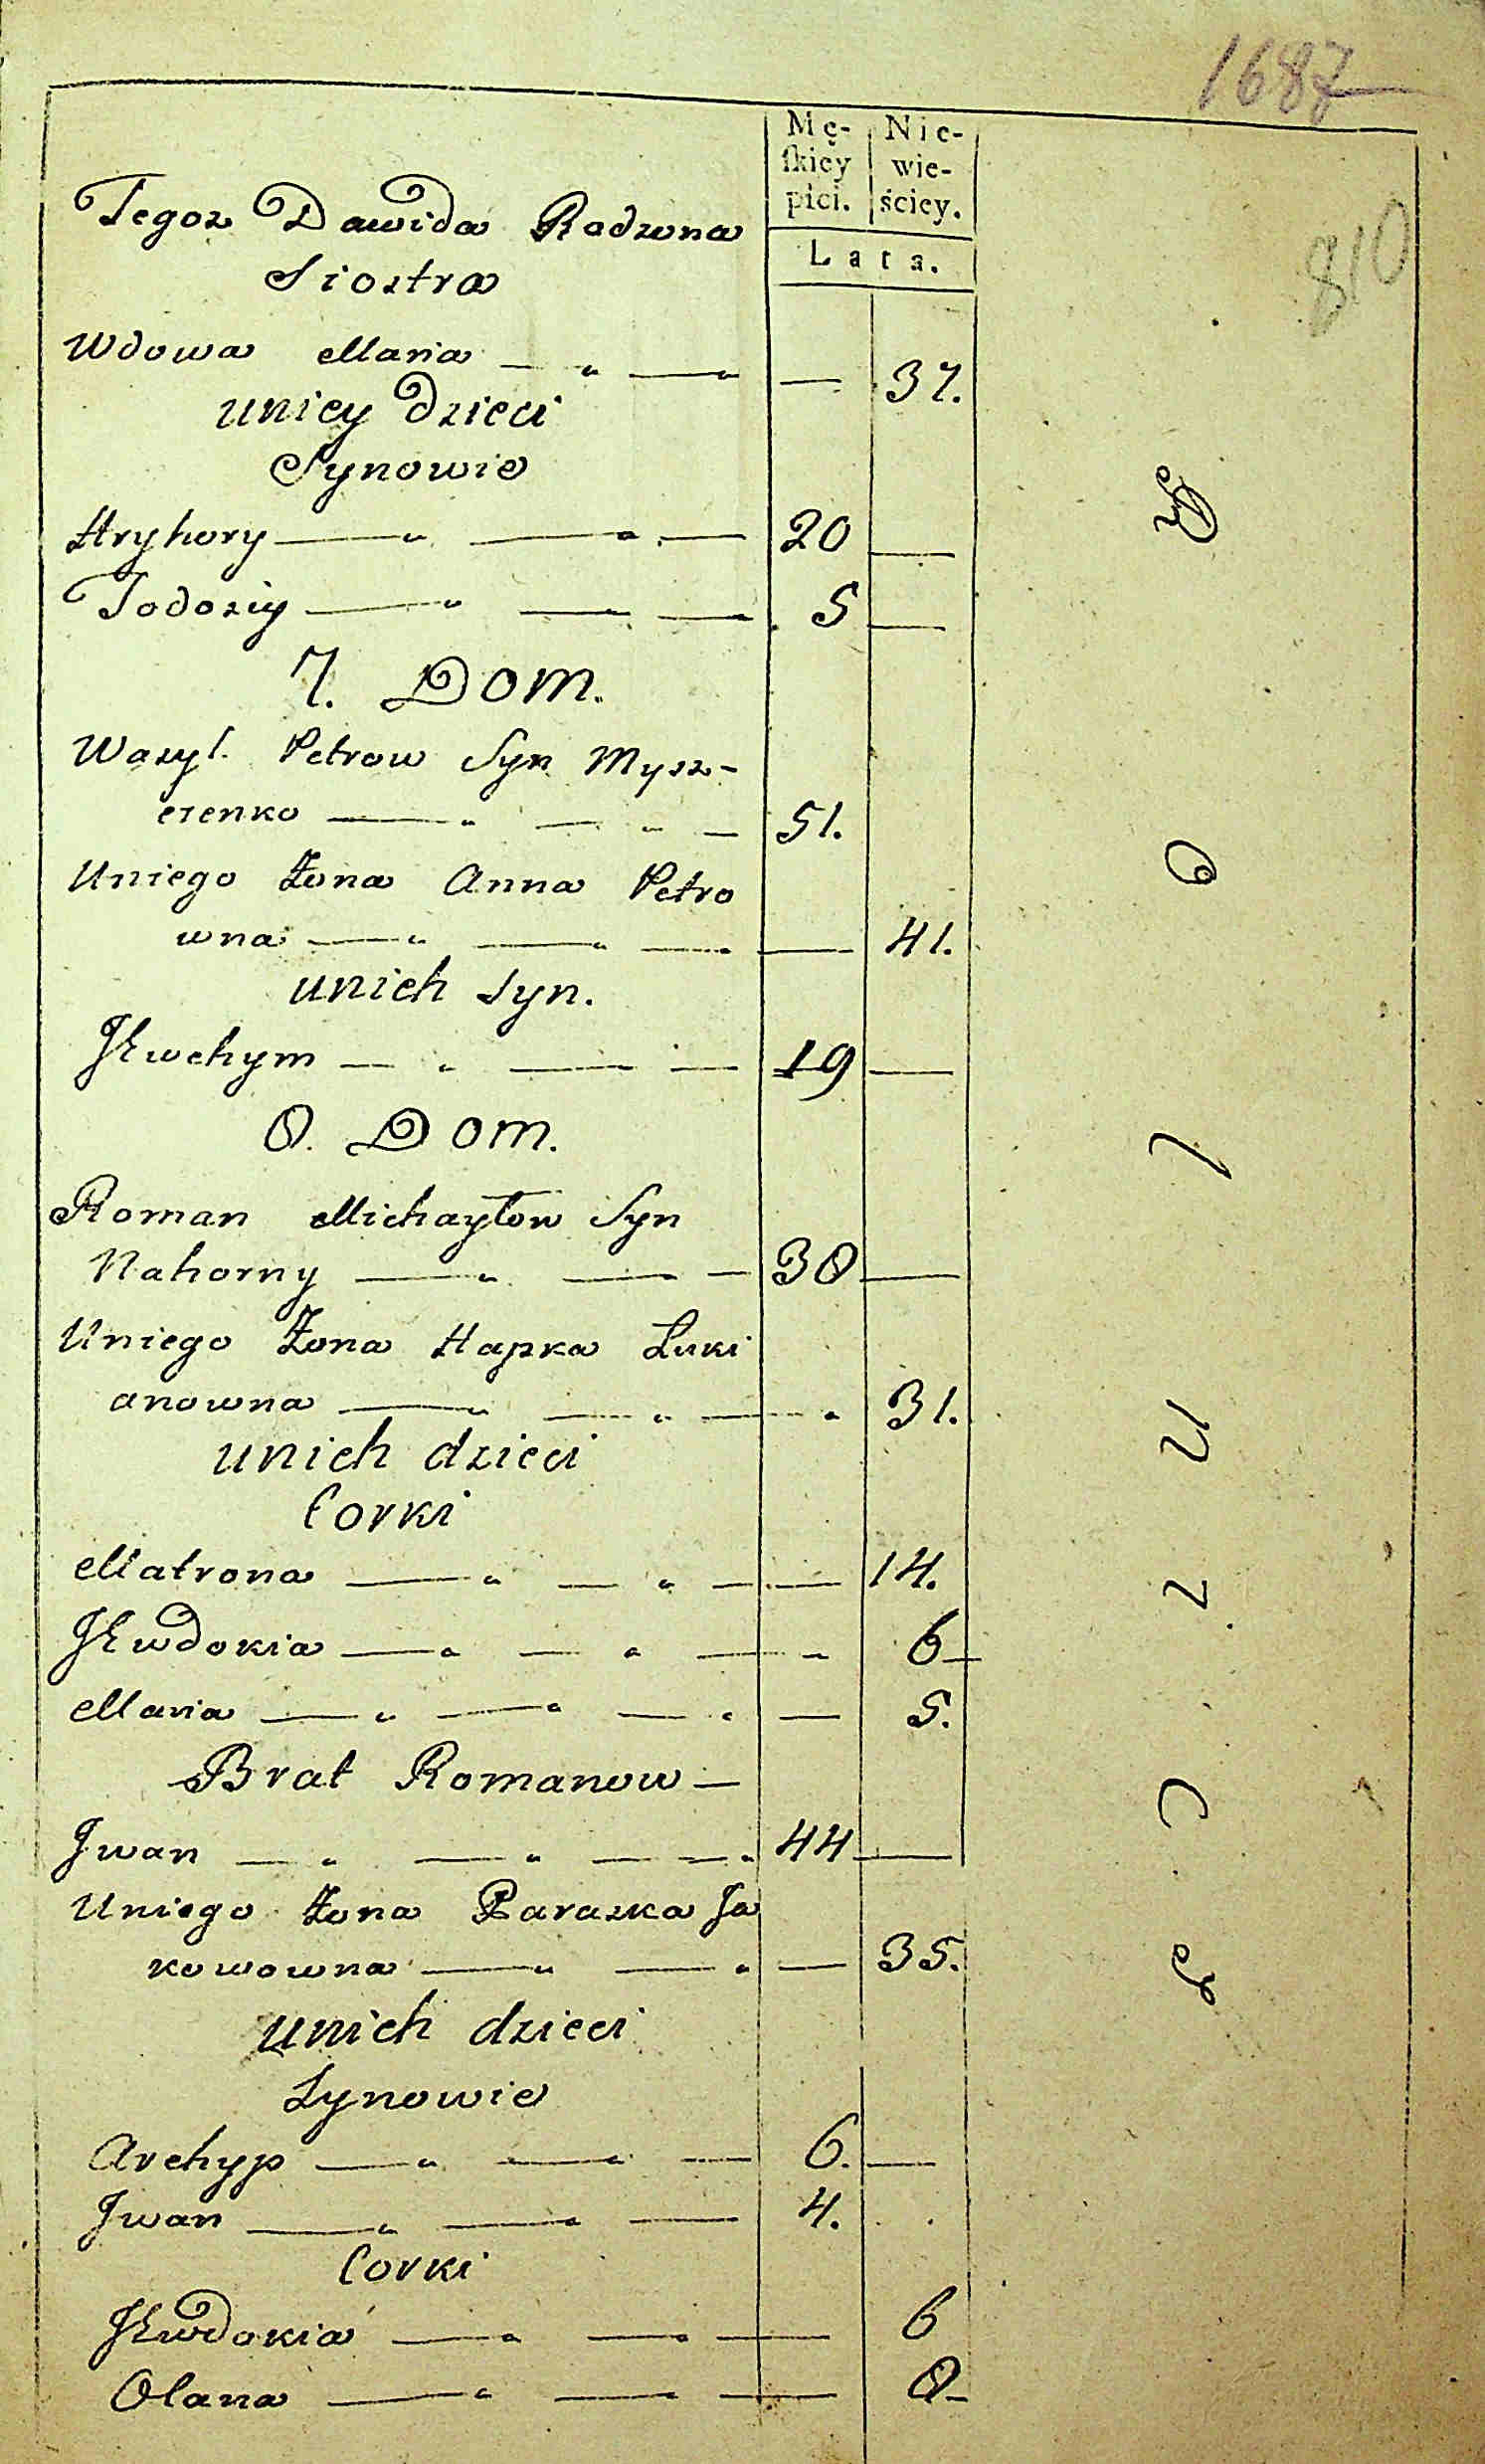 1687
810
Mę-
skiey
płci.
Nie-
wie-
ściey.
Lata.
Tegoz Dawida Rodzona
Siostra
Wdowa Maria — „ — „ — 37.
uniey dzieci
Synowie
Hryhory — „ — „ — 20 —
Todosiy — „ — „ — 5 —
7. Dom.
Wasyl Petrow Syn Mysz-
czenko — „ — „ — 51.
Uniego Żona Anna Petro
wna — „ — „ — — 41.
unich Syn.
Jewchym — „ — — 19 —
8. Dom.
Roman Michayłow Syn
Nahorny — „ — — 38 —
Uniego Żona Hapka Łuki
anowna — „ — „ — „ 31.
unich dzieci
Corki
Matrona — „ — „ — — 14.
Jewdokia — „ — „ — „ 6 —
Maria — „ — „ — „ — 5.
Brat Romanow —
Jwan — „ — „ — — „ 44 —
Uniego Żona Paraska Ja
kowowna — „ — „ — 35.
unich dzieci
Synowie
Archyp — „ — „ — 6. —
Jwan — „ — „ — 4.
Corki
Jewdokia — „ — „ — 6
Olana — „ — „ — 8 —
Rolnicy